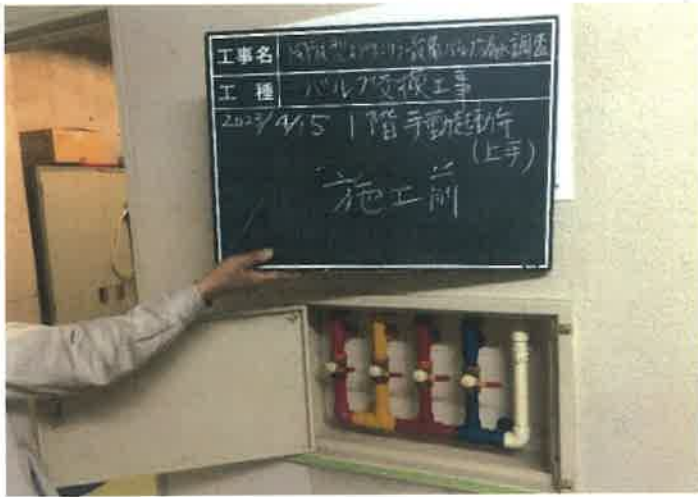 工事名 調査
工種 バルブ交換工事
2023/4/15 1階 手動起動弁
(上手)
施工前